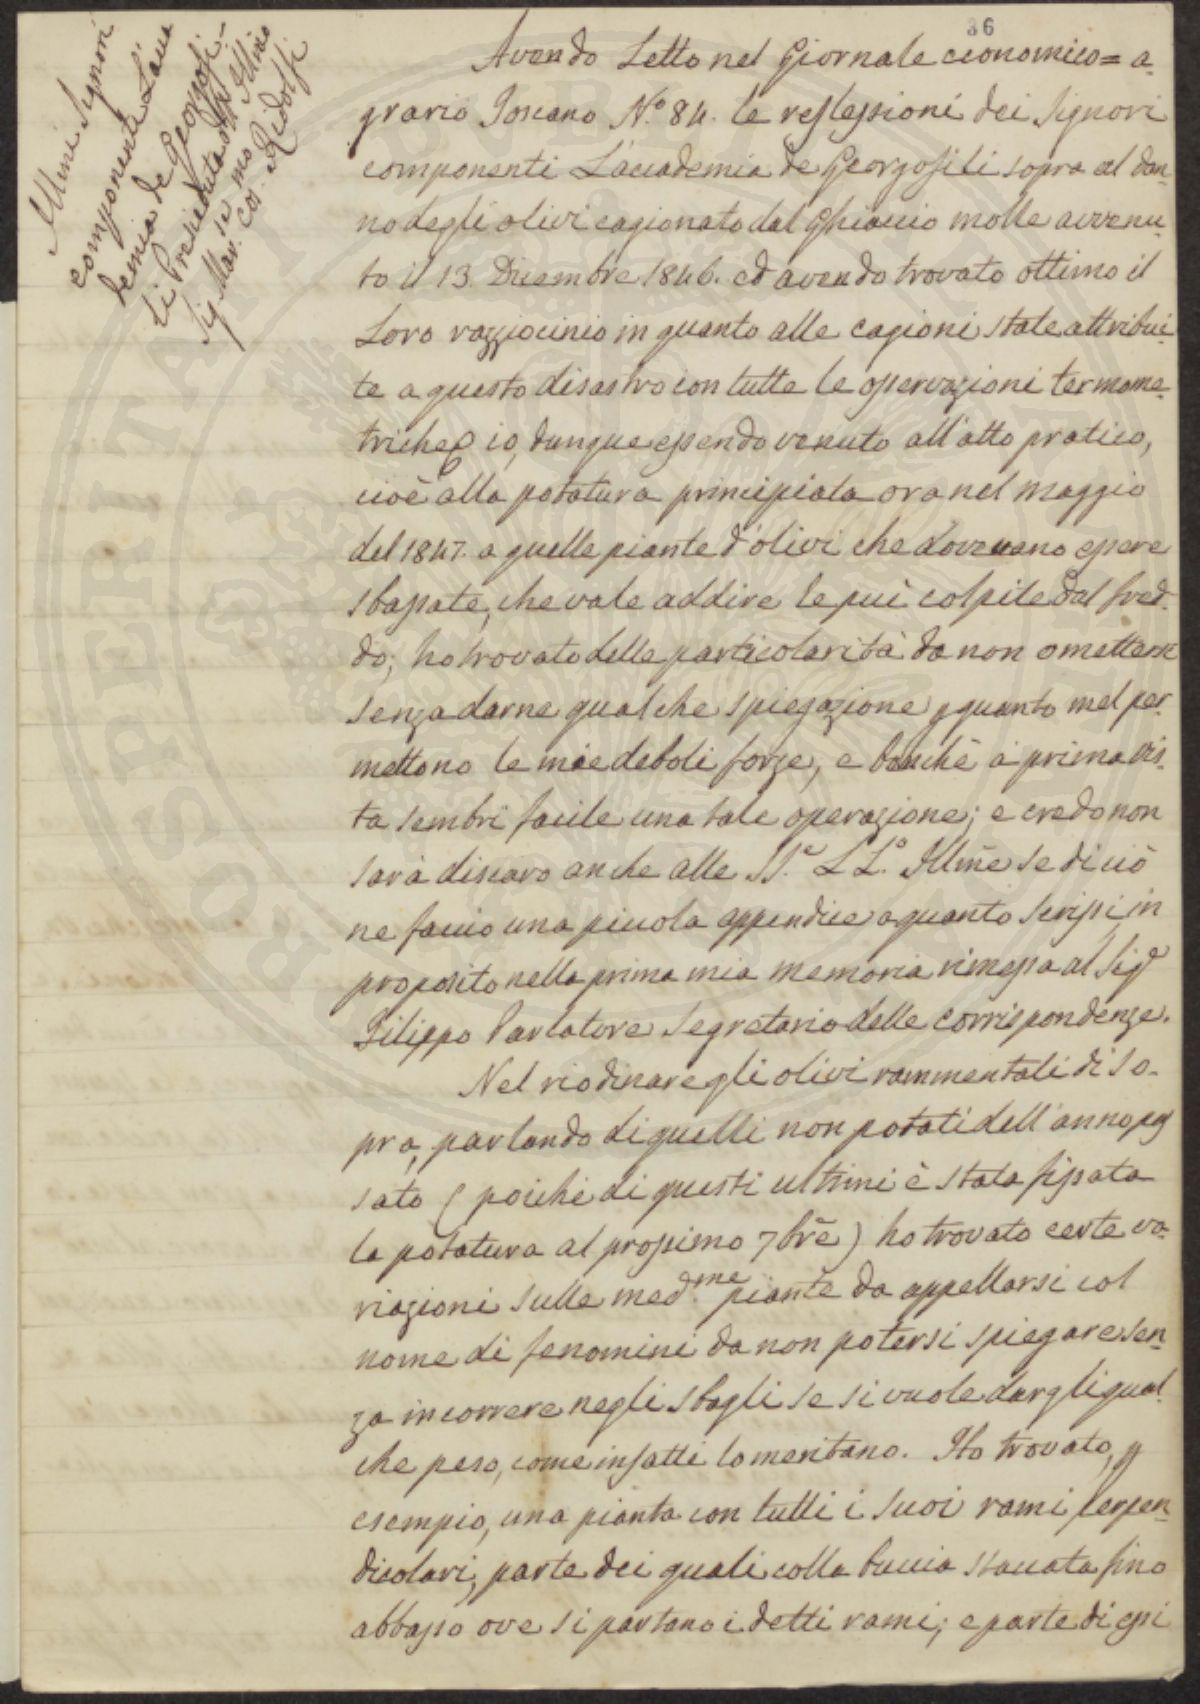 36
Illmi Signori
componenti L'acca
demia de Georgofi-
li Presieduta dall'Illmo
Sig. Mar. Cos. Ridolfi
Avendo Letto nel Giornale economico= a-
grario Toscano N.° 84. le reflessioni dei Signori
componenti L'accademia de Georgofili sopra al dan-
no degli olivi cagionato dal Ghiaccio molle avvenu-
to il 13. Dicembre 1846. ed avendo trovato ottimo il
Loro razziocinio in quanto alle cagioni state attribui-
te a questo disastro con tutte le osservazioni termome-
triche io, dunque essendo venuto all'atto pratico,
cioè alla potatura principiata ora nel maggio
del 1847. a quelle piante d'olivi che dovevano essere
sbassate, che vale addire le più colpite dal fred-
do; ho trovato delle particolarità da non omettersi
senza darne qualche spiegazione p quanto mel per-
mettono le mie deboli forze, e benchè a prima vis-
ta sembri facile una tale operazione; e credo non
sarà discaro anche alle SS.e LL.° Illm̃e se di ciò
ne faccio una piccola appendice a quanto scrissi, in
proposito nella prima mia memoria rimessa al Sigr
Filippo Parlatore Segretario delle corrispondenze.
Nel riodinare gli olivi rammentati di so-
pra, parlando di quelli non potati dell'anno pas
sato ( poichè di questi ultimi è stata fissata
la potatura al prossimo 7brẽ ) ho trovato certe va-
riazioni sulle med.me piante da appellarsi col
nome di fenomini da non potersi spiegare sen-
za incorrere negli sbagli se si vuole dargli qual-
che peso, come infatti lo meritano. Ho trovato, p
esempio, una pianta con tutti i suoi rami perpen-
dicolari, parte dei quali colla buccia staccata fino
abbasso ove si partano i detti rami; e parte di essi
PROSPERITATI PUBLICAE